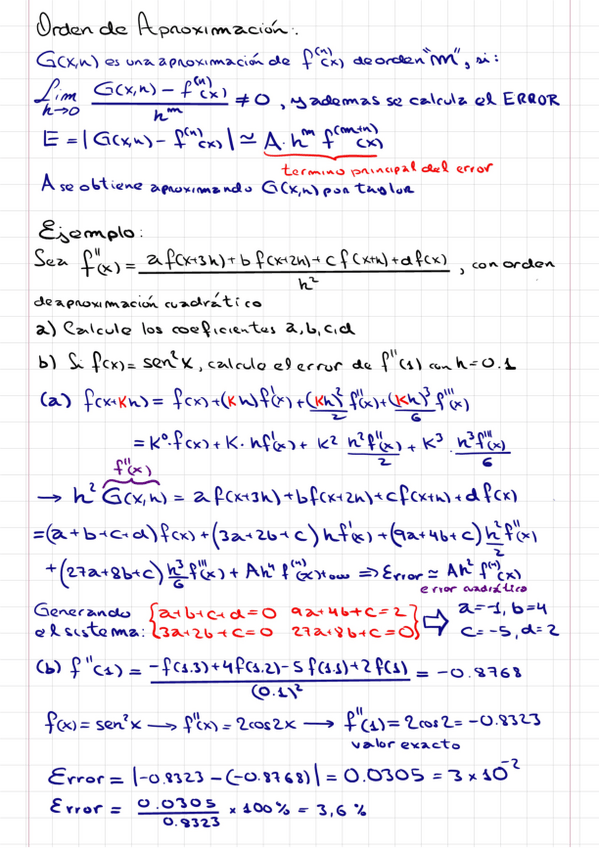 Orden de Aproximación:.
G(x,h) es una aproximación de f⁽ⁿ⁾(x) de orden "m", si:
Lim h→0 (G(x,h) − f⁽ⁿ⁾(x))/hᵐ ≠ 0, y ademas se calcula el ERROR
E = |G(x,h) − f⁽ⁿ⁾(x)| ≃ A·hᵐ f⁽ᵐ⁺ⁿ⁾(x)
termino principal del error
A se obtiene aproximando G(x,h) por taylor
Ejemplo:
Sea f''(x) = (a f(x+3h) + b f(x+2h) + c f(x+h) + d f(x))/h², con orden
de aproximación cuadrático
a) Calcule los coeficientes a,b,c,d
b) Si f(x) = sen²x, calcule el error de f''(1) con h=0.1
(a) f(x+Kh) = f(x) + (Kh)f'(x) + (Kh)²/2 f''(x) + (Kh)³/6 f'''(x)
= K⁰·f(x) + K·hf'(x) + K² h²f''(x)/2 + K³·h³f'''(x)/6
f''(x)
→ h² G(x,h) = a f(x+3h) + b f(x+2h) + c f(x+h) + d f(x)
= (a+b+c+d) f(x) + (3a+2b+c) h f'(x) + (9a+4b+c) h²/2 f''(x)
+ (27a+8b+c) h³/6 f'''(x) + Ah⁴ f⁽ⁿ⁾(x) + ⇒ Error ≃ Ah² f⁽ⁿ⁾(x)
error cuadrático
Generando { a+b+c+d=0 9a+4b+c=2 } ⇨ a=-1, b=4
el sistema: { 3a+2b+c=0 27a+8b+c=0 } c=-5, d=2
(b) f''(1) = (-f(1.3) + 4f(1.2) - 5f(1.1) + 2f(1))/(0.1)² = -0.8768
f(x) = sen²x → f''(x) = 2cos2x → f''(1) = 2cos2 = -0.8323
valor exacto
Error = |-0.8323 - (-0.8768)| = 0.0305 = 3×10⁻²
Error = 0.0305/0.8323 × 100% = 3,6 %